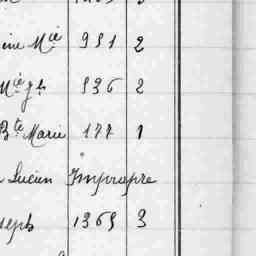 ine Mie 951 2
Mie Jh 536 2
Bte Marie 177 1
Lucien Impropre
seph 1365 3